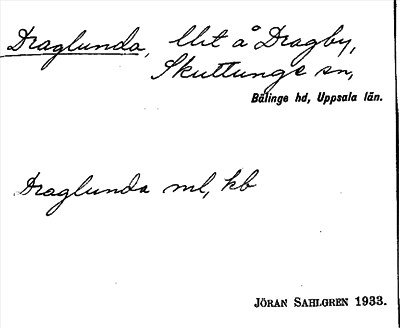 Draglunda, lht å Dragby,
Skuttunge sn,
Bälinge hd, Uppsala län.
Draglunda ml, kb
JÖRAN SAHLGREN 1933.